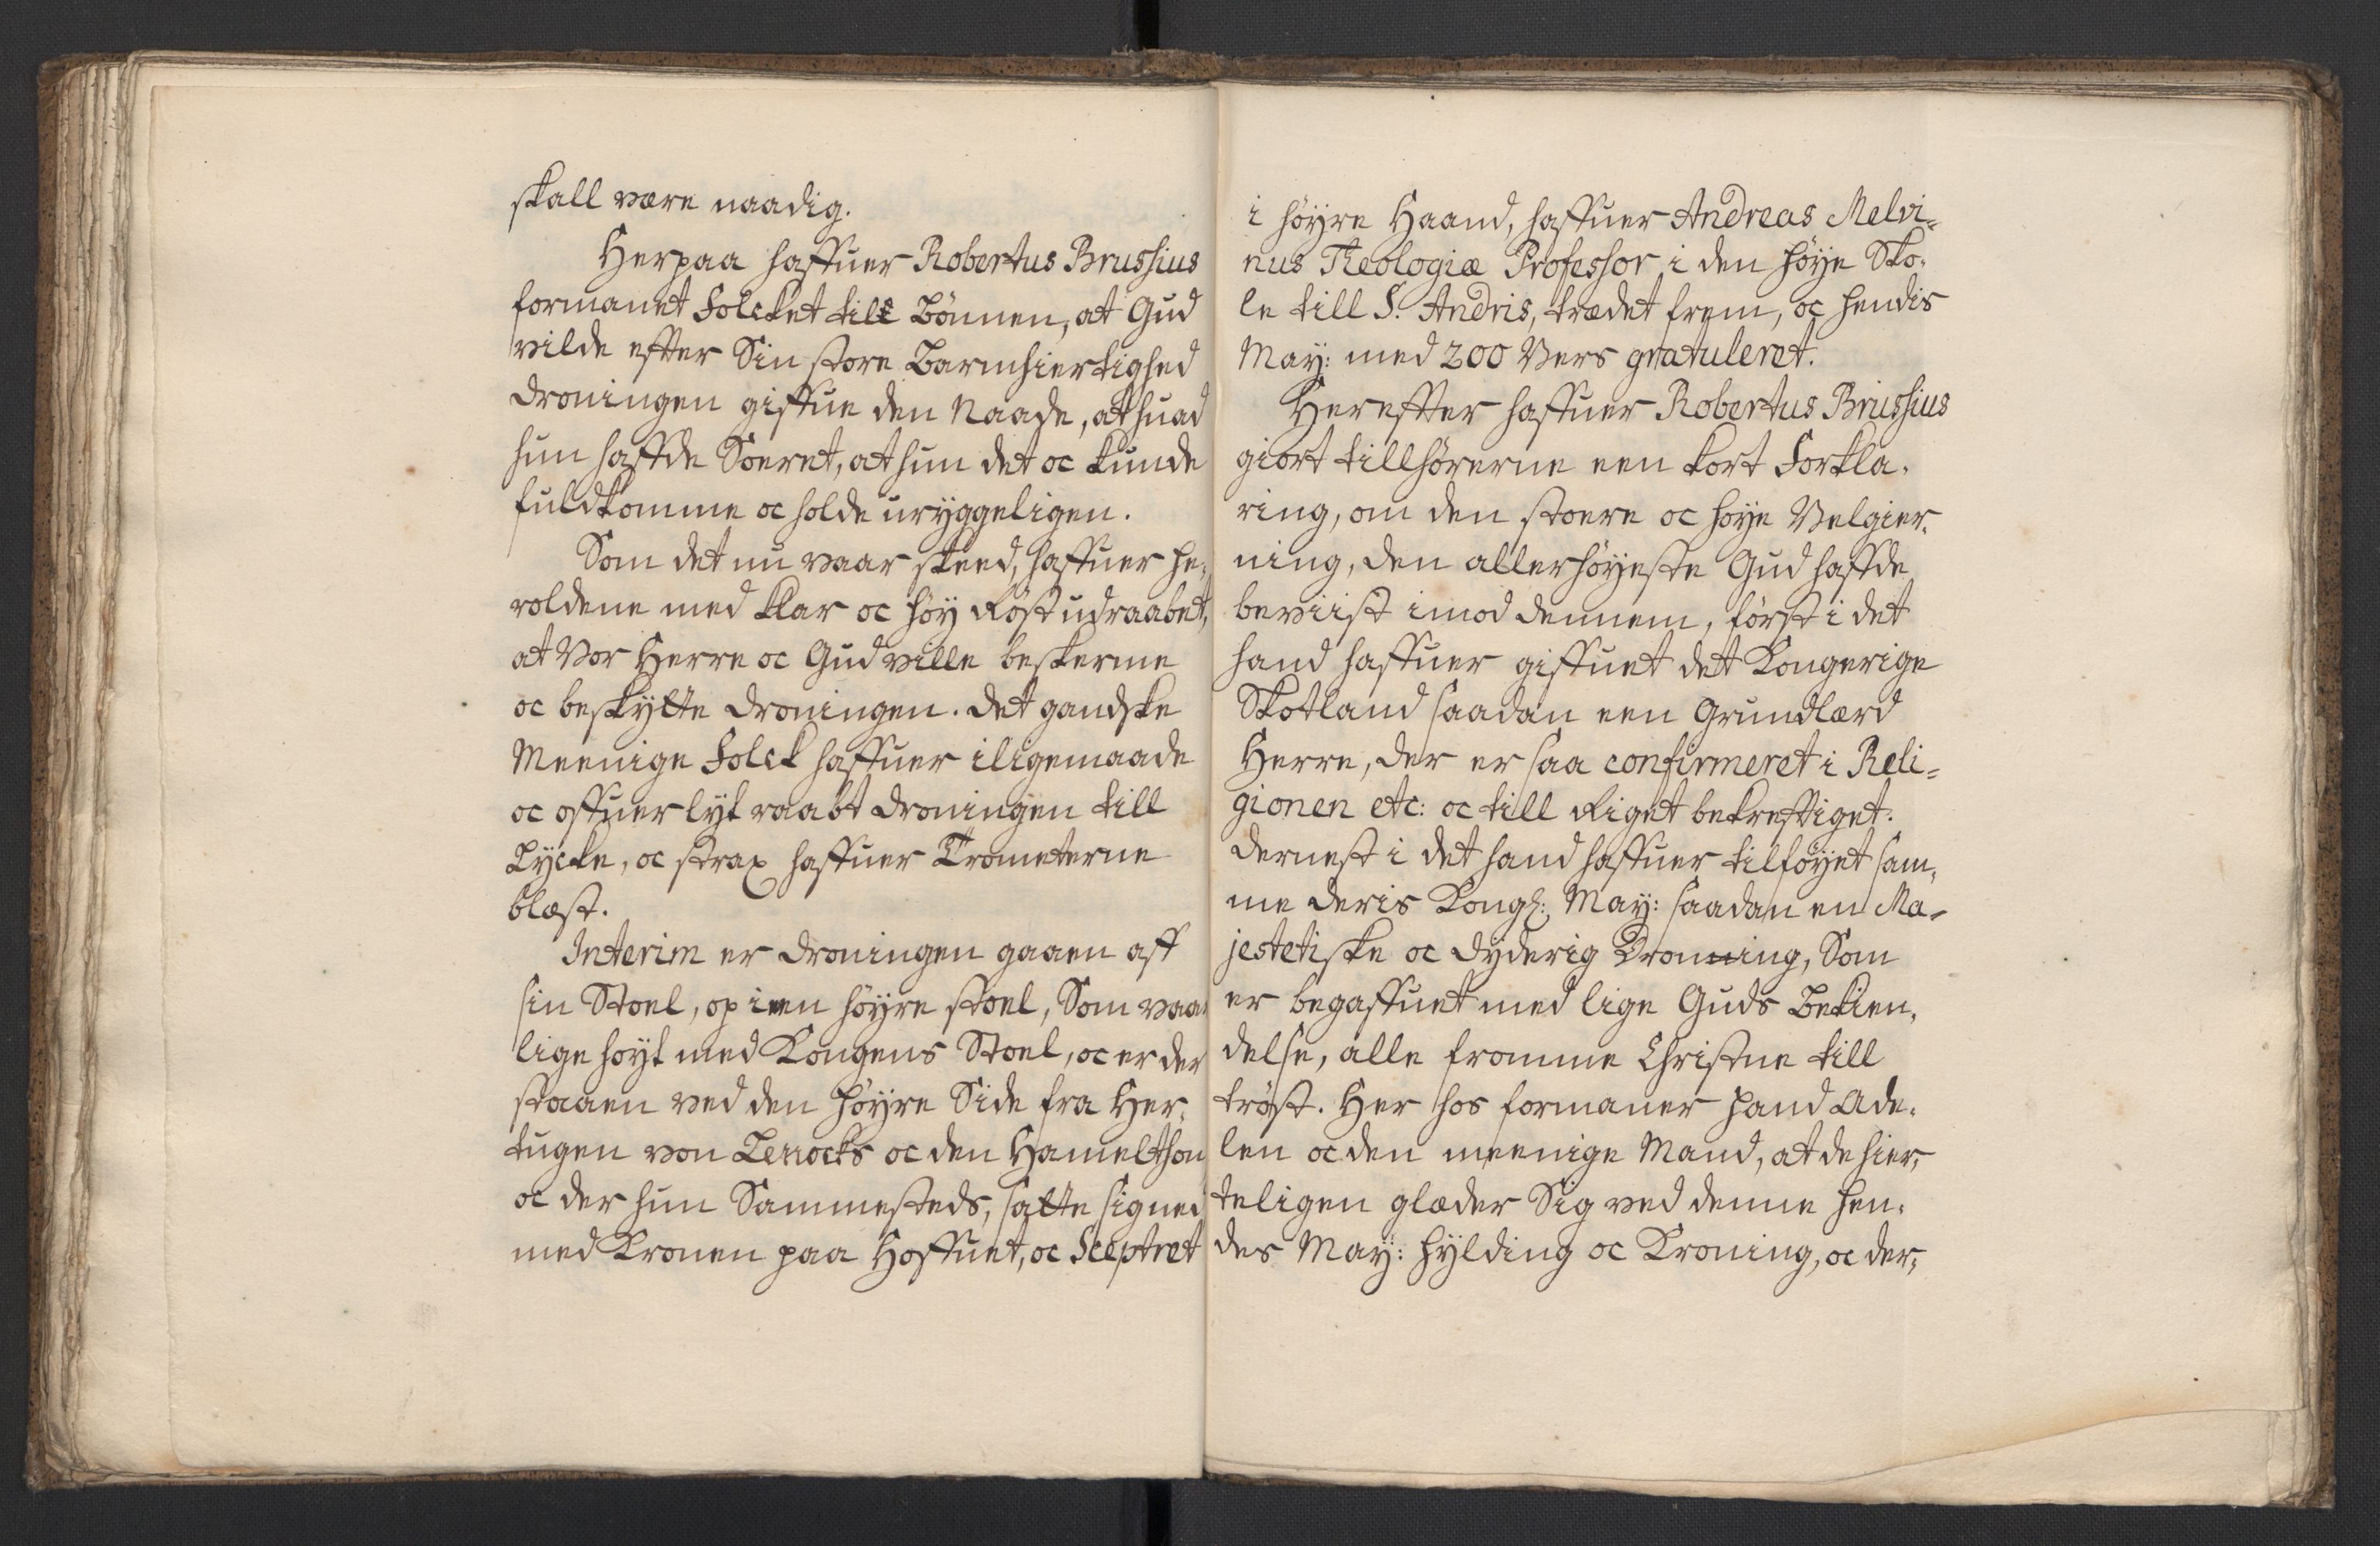 skall være naadig.
Herpaa haffuer Robertus Brussius
formanet Folcket till Bönnen, at Gud
vilde effter Sin store Barmhiertighed
Droningen giffue den Naade, at huad
hun haffde Soeret, at hun det oc kunde
fuldkomme oc holde uryggeligen.
Som det nu vaar skeed, haffuer He,
roldene med klar oc höy Röst udraabet,
at Vor Herre oc Gud ville beskerme
oc beskytte Droningen. Det gandske
Meenige Folck haffuer iligemaade
oc offuerlyt raabt Droningen till
Lycke, oc strax haffuer Trometerne
blæst.
Interim er Droningen gaaen aff
sin Stoel, op i en höyre stoel, Som vaar
lige höyt med Kongens Stoel, oc er der
staaen ved den höyre Side fra Her,
tugen von Lenocks oc den Hamelthon
oc der hun Sammesteds, satte signed
med Kronen paa Hoffuet, oc Sceptret
i höyre Haand, haffuer Andreas Melvi=
nus Theologiæ Professor i den höye Sko,
le till S. Andris, trædet frem, oc hendis
May: med 200 Vers gratuleret.
Hereffter haffuer Robertus Brussius
giort tillhörerne een kort Forkla,
ring, om den stoere oc höye Velgier,
ning, den allerhöyeste Gud haffde
beviist imod dennem, först i det
hand haffuer giffuet det Kongerige
Skotland saadan een Grundlærd
Herre, der er saa confirmeret i Reli=
gionen etc: oc till Riget bekrefftiget.
Dernest i det hand haffuer tilföyet sam,
me deris Kongl: May: saadan en Ma=
jestetiske oc dyderig Droning, Som
er begaffuet med lige Guds Bekien,
delse, alle fromme Christne till
tröst. Her hos formaner hand Ade,
len oc den meenige Mand, at de hier,
teligen glæder Sig ved denne hen,
des May: hylding oc Kroning, oc der,